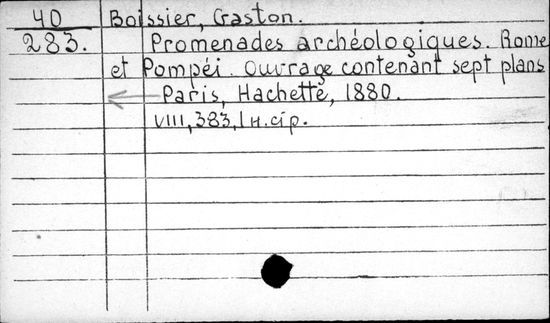 40 Boissier, Gaston.
283. Promenades archéologiques. Rome
et Pompéi. Ouvrage contenant sept plans
Paris, Hachette, 1880.
VIII, 383, 1 н. стр.